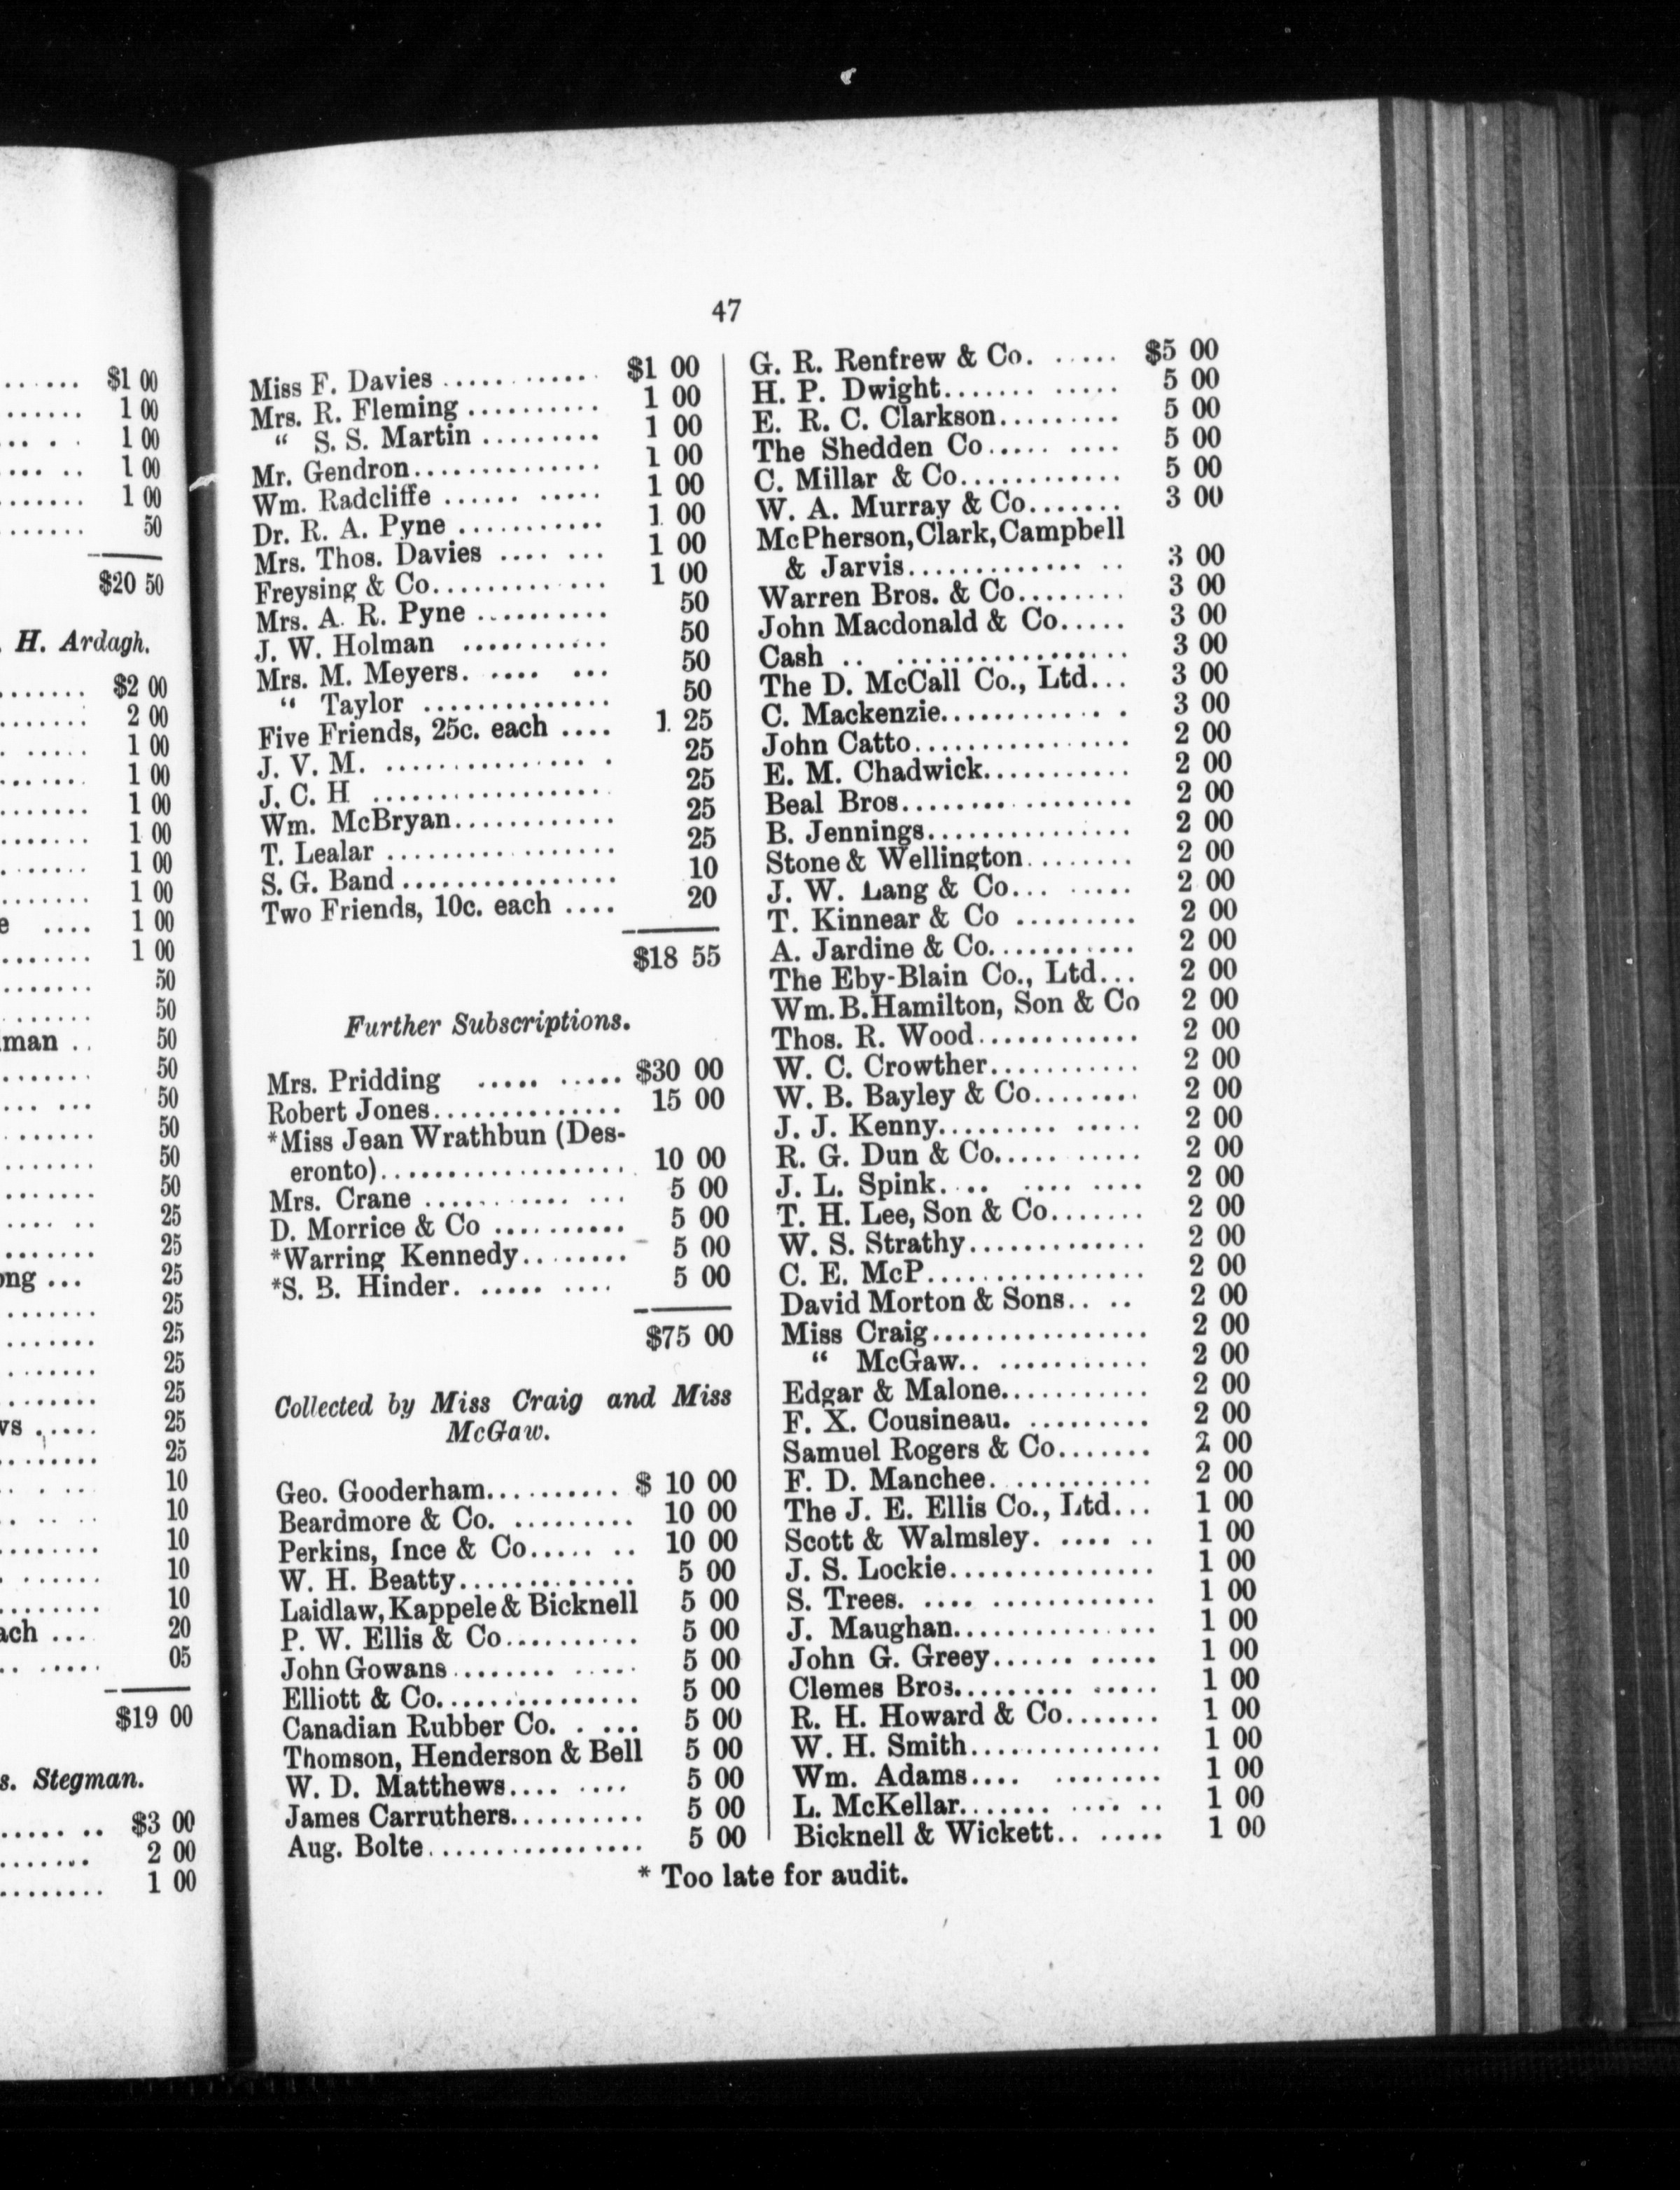 $1 00
1 00
1 00
1 00
1 00
50
$20 50
H. Ardagh.
$2 00
2 00
1 00
1 00
1 00
1 00
1 00
1 00
1 00
1 00
50
50
50
50
50
50
50
50
25
25
25
25
25
25
25
25
25
10
10
10
10
10
20
05
$19 00
s. Stegman.
$3 00
2 00
1 00
47
Miss F. Davies ............ $1 00
Mrs. R. Fleming .......... 1 00
“ S. S. Martin ......... 1 00
Mr. Gendron............... 1 00
Wm. Radcliffe ...... ..... 1 00
Dr. R. A. Pyne ............ 1 00
Mrs. Thos. Davies .... ... 1 00
Freysing & Co.............. 1 00
Mrs. A. R. Pyne .......... 50
J. W. Holman ........... 50
Mrs. M. Meyers. .... ... 50
“ Taylor .............. 50
Five Friends, 25c. each .... 1 25
J. V. M. ................ 25
J. C. H .................. 25
Wm. McBryan............ 25
T. Lealar ................. 25
S. G. Band ................ 10
Two Friends, 10c. each .... 20
$18 55
Further Subscriptions.
Mrs. Pridding ..... ..... $30 00
Robert Jones.............. 15 00
*Miss Jean Wrathbun (Des-
eronto).................. 10 00
Mrs. Crane ........... ... 5 00
D. Morrice & Co .......... 5 00
*Warring Kennedy........ 5 00
*S. B. Hinder. ..... .... 5 00
$75 00
Collected by Miss Craig and Miss
McGaw.
Geo. Gooderham.......... $ 10 00
Beardmore & Co. ......... 10 00
Perkins, Ince & Co..... .. 10 00
W. H. Beatty............. 5 00
Laidlaw, Kappele & Bicknell 5 00
P. W. Ellis & Co.......... 5 00
John Gowans........ ..... 5 00
Elliott & Co............... 5 00
Canadian Rubber Co. . ... 5 00
Thomson, Henderson & Bell 5 00
W. D. Matthews.... .... 5 00
James Carruthers.......... 5 00
Aug. Bolte................ 5 00
G. R. Renfrew & Co. ..... $5 00
H. P. Dwight....... ..... 5 00
E. R. C. Clarkson......... 5 00
The Shedden Co..... .... 5 00
C. Millar & Co............ 5 00
W. A. Murray & Co....... 3 00
McPherson, Clark, Campbell
& Jarvis............. .. 3 00
Warren Bros. & Co........ 3 00
John Macdonald & Co..... 3 00
Cash .. ................. 3 00
The D. McCall Co., Ltd... 3 00
C. Mackenzie............ . 3 00
John Catto................ 2 00
E. M. Chadwick........... 2 00
Beal Bros................. 2 00
B. Jennings............... 2 00
Stone & Wellington........ 2 00
J. W. Lang & Co... ..... 2 00
T. Kinnear & Co ......... 2 00
A. Jardine & Co........... 2 00
The Eby-Blain Co., Ltd... 2 00
Wm. B. Hamilton, Son & Co 2 00
Thos. R. Wood............ 2 00
W. C. Crowther........... 2 00
W. B. Bayley & Co........ 2 00
J. J. Kenny......... ..... 2 00
R. G. Dun & Co.... ..... 2 00
J. L. Spink. ... .... .... 2 00
T. H. Lee, Son & Co....... 2 00
W. S. Strathy............. 2 00
C. E. McP................ 2 00
David Morton & Sons.. .. 2 00
Miss Craig................ 2 00
“ McGaw.. ........... 2 00
Edgar & Malone........... 2 00
F. X. Cousineau. ......... 2 00
Samuel Rogers & Co....... 2 00
F. D. Manchee............ 2 00
The J. E. Ellis Co., Ltd... 1 00
Scott & Walmsley. .... .. 1 00
J. S. Lockie............... 1 00
S. Trees. .... ............ 1 00
J. Maughan............... 1 00
John G. Greey...... ..... 1 00
Clemes Bros......... ..... 1 00
R. H. Howard & Co....... 1 00
W. H. Smith.............. 1 00
Wm. Adams.... ........ 1 00
L. McKellar....... .... .. 1 00
Bicknell & Wickett.. ..... 1 00
* Too late for audit.